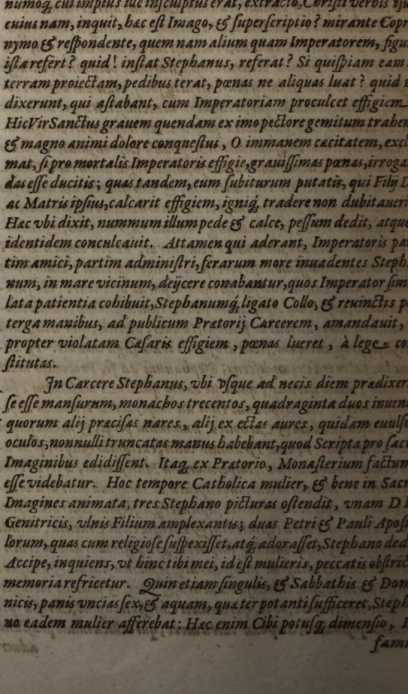 numoq, cui impius ille insculptus erat, extracto, Christi verbis
cuius nam, inquit, hæc est Imago, & superscriptio? mirante Copr
nymo & respondente, quem nam alium quam Imperatorem, figu
ista refert? quid! instat Stephanus, referat? Si quispiam eam
terram proiectam, pedibus terat, pœnas ne aliquas luat? quid
dixerunt, qui astabant, cum Imperatoriam proculcet effigiem
Hic Vir Sanctus grauem quendam ex imo pectore gemitum trahen
& magno animi dolore conquestus, O immanem cæcitatem, excl
mat, si pro mortalis Imperatoris effigie, grauissimas pœnas, irroga
das esse ducitis; quas tandem, eum subiturum putatis, qui Filij D
ac Matris ipsius, calcarit effigiem, igniq́, tradere non dubitaueri
Hæc vbi dixit, nummum illum pede & calce, pessum dedit, atque
identidem conculcauit. Attamen qui aderant, Imperatoris par
tim amici, partim administri, ferarum more inuadentes Steph
num, in mare vicinum, deijcere conabantur, quos Imperator sim
lata patientia cohibuit, Stephanumq́; ligato Collo, & reuinctis p
terga manibus, ad publicum Pretorij Carcerem, amandauit,
propter violatam Cæsaris effigiem, pœnas lueret, à lege con
stitutas.
In Carcere Stephanus, vbi vsque ad necis diem prædixer
se esse mansurum, monachos trecentos, quadraginta duos inuen
quorum alij præcisas nares, alij exectas aures, quidam euulso
oculos, nonnulli truncatas manus habebant, quod Scripta pro sac
Imaginibus edidissent. Itaq́, ex Prætorio, Monasterium factum
esse videbatur. Hoc tempore Catholica mulier, & bene in Sacr
Imagines animata, tres Stephano picturas ostendit, vnam D
Genitricis, vlnis Filium amplexantis; duas Petri & Pauli Apost
lorum, quas cum religiose suspexisset, atq́; adorasset, Stephano ded
Accipe, inquiens, vt hinc tibi mei, id est mulieris, peccatis obstric
memoria refricetur. Quin etiam singulis, & Sabbathis & Dom
nicis, panis vncias sex, & aquam, quæ ter potanti sufficeret, Steph
no eadem mulier afferebat: Hæc enim Cibi potusq́; dimensio,
fami